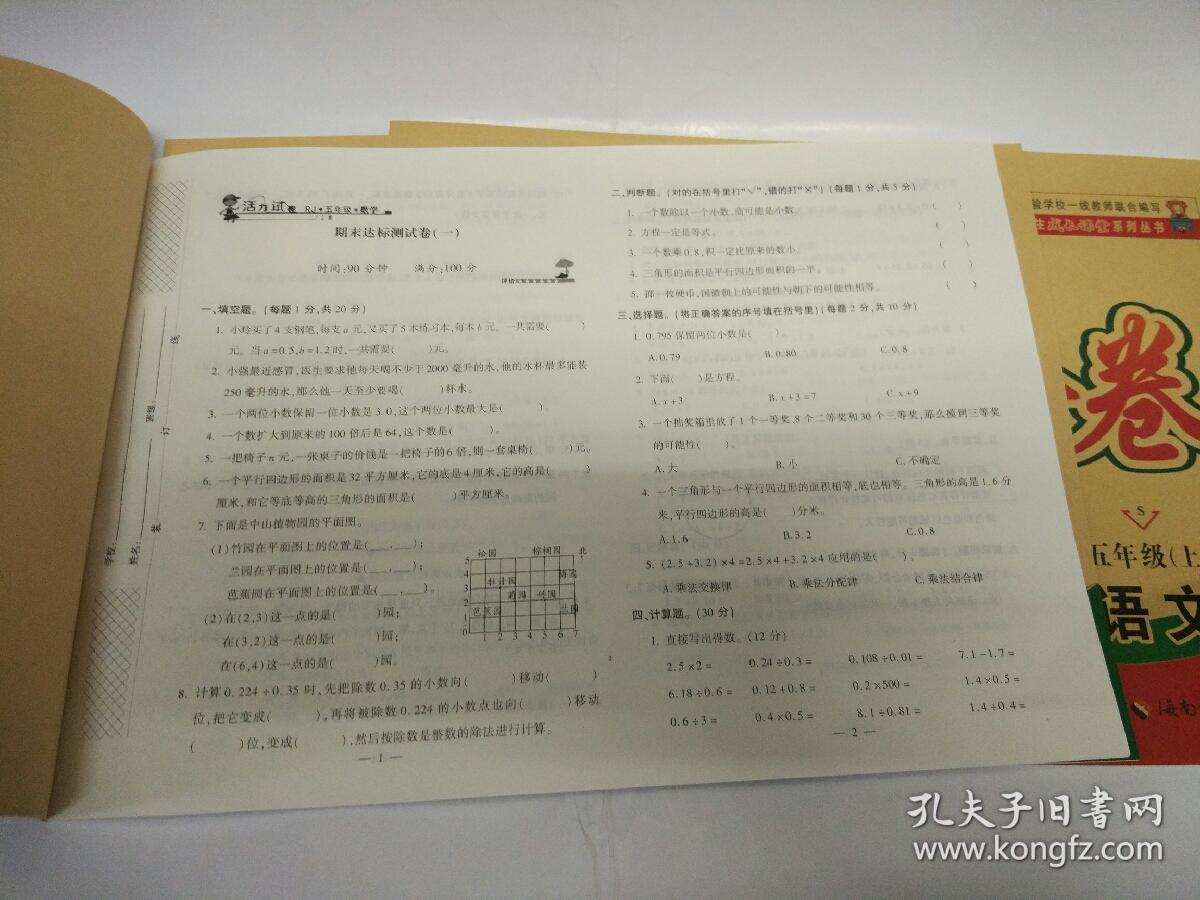 活力试卷 RJ·五年级·数学
期末达标测试卷(一)
时间:90分钟 满分:100分
评价
一、填空题。(每题1分,共20分)
1. 小玲买了4支钢笔,每支a元,又买了5本练习本,每本b元。一共需要( )
元。当a=0.5,b=1.2时,一共需要( )元。
2. 小强最近感冒,医生要求他每天喝不少于2000毫升的水,他的水杯最多能装
250毫升的水,那么他一天至少要喝( )杯水。
3. 一个两位小数保留一位小数是3.0,这个两位小数最大是( )。
4. 一个数扩大到原来的100倍后是64,这个数是( )。
5. 一把椅子n元,一张桌子的价钱是一把椅子的6倍,则一套桌椅( )元。
6. 一个平行四边形的面积是32平方厘米,它的底是4厘米,它的高是( )
厘米,和它等底等高的三角形的面积是( )平方厘米。
7. 下面是中山植物园的平面图。
(1)竹园在平面图上的位置是(___,___);
兰园在平面图上的位置是(___,___);
芭蕉园在平面图上的位置是(___,___)。
(2)在(2,3)这一点的是( )园;
在(3,2)这一点的是( )园;
在(6,4)这一点的是( )园。
松园 棕榈园 北
梅园
牡丹园
菊园 竹园
芭蕉园 兰园
5
4
3
2
1
0 1 2 3 4 5 6 7
8. 计算0.224÷0.35时,先把除数0.35的小数向( )移动( )
位,把它变成( ),再将被除数0.224的小数点也向( )移动
( )位,变成( ),然后按除数是整数的除法进行计算。
— 1 —
学校:
姓名:
班级:
装
订
线
二、判断题。(对的在括号里打“√”,错的打“×”)(每题1分,共5分)
1. 一个数除以一个小数,商可能是小数。 ( )
2. 方程一定是等式。 ( )
3. 一个数乘0.8,积一定比原来的数小。 ( )
4. 三角形的面积是平行四边形面积的一半。 ( )
5. 掷一枚硬币,国徽朝上的可能性与朝下的可能性相等。 ( )
三、选择题。(将正确答案的序号填在括号里)(每题2分,共10分)
1. 0.795保留两位小数是( )。
A.0.79 B.0.80 C.0.8
2. 下面( )是方程。
A.x+3 B.x+3=7 C.x+9
3. 一个抽奖箱里放了1个一等奖、8个二等奖和30个三等奖,那么模到三等奖
的可能性( )。
A.大 B.小 C.不确定
4. 一个三角形与一个平行四边形的面积相等,底也相等。三角形的高是1.6分
米,平行四边形的高是( )分米。
A.1.6 B.3.2 C.0.8
5. (2.5÷3.2)×4=2.5×4+3.2×4应用的是( )。
A.乘法交换律 B.乘法分配律 C.乘法结合律
四、计算题。(30分)
1. 直接写出得数。(12分)
2.5×2= 0.24÷0.3= 0.108÷0.01= 7.1-1.7=
6.18÷0.6= 0.12+0.8= 0.2×500= 1.4×0.5=
0.6÷3= 0.4×0.5= 8.1÷0.81= 1.4÷0.4=
— 2 —
验学校一线教师联合编写
系列丛书
卷
S
五年级(上
语文
海南
孔夫子旧书网
www.kongfz.com